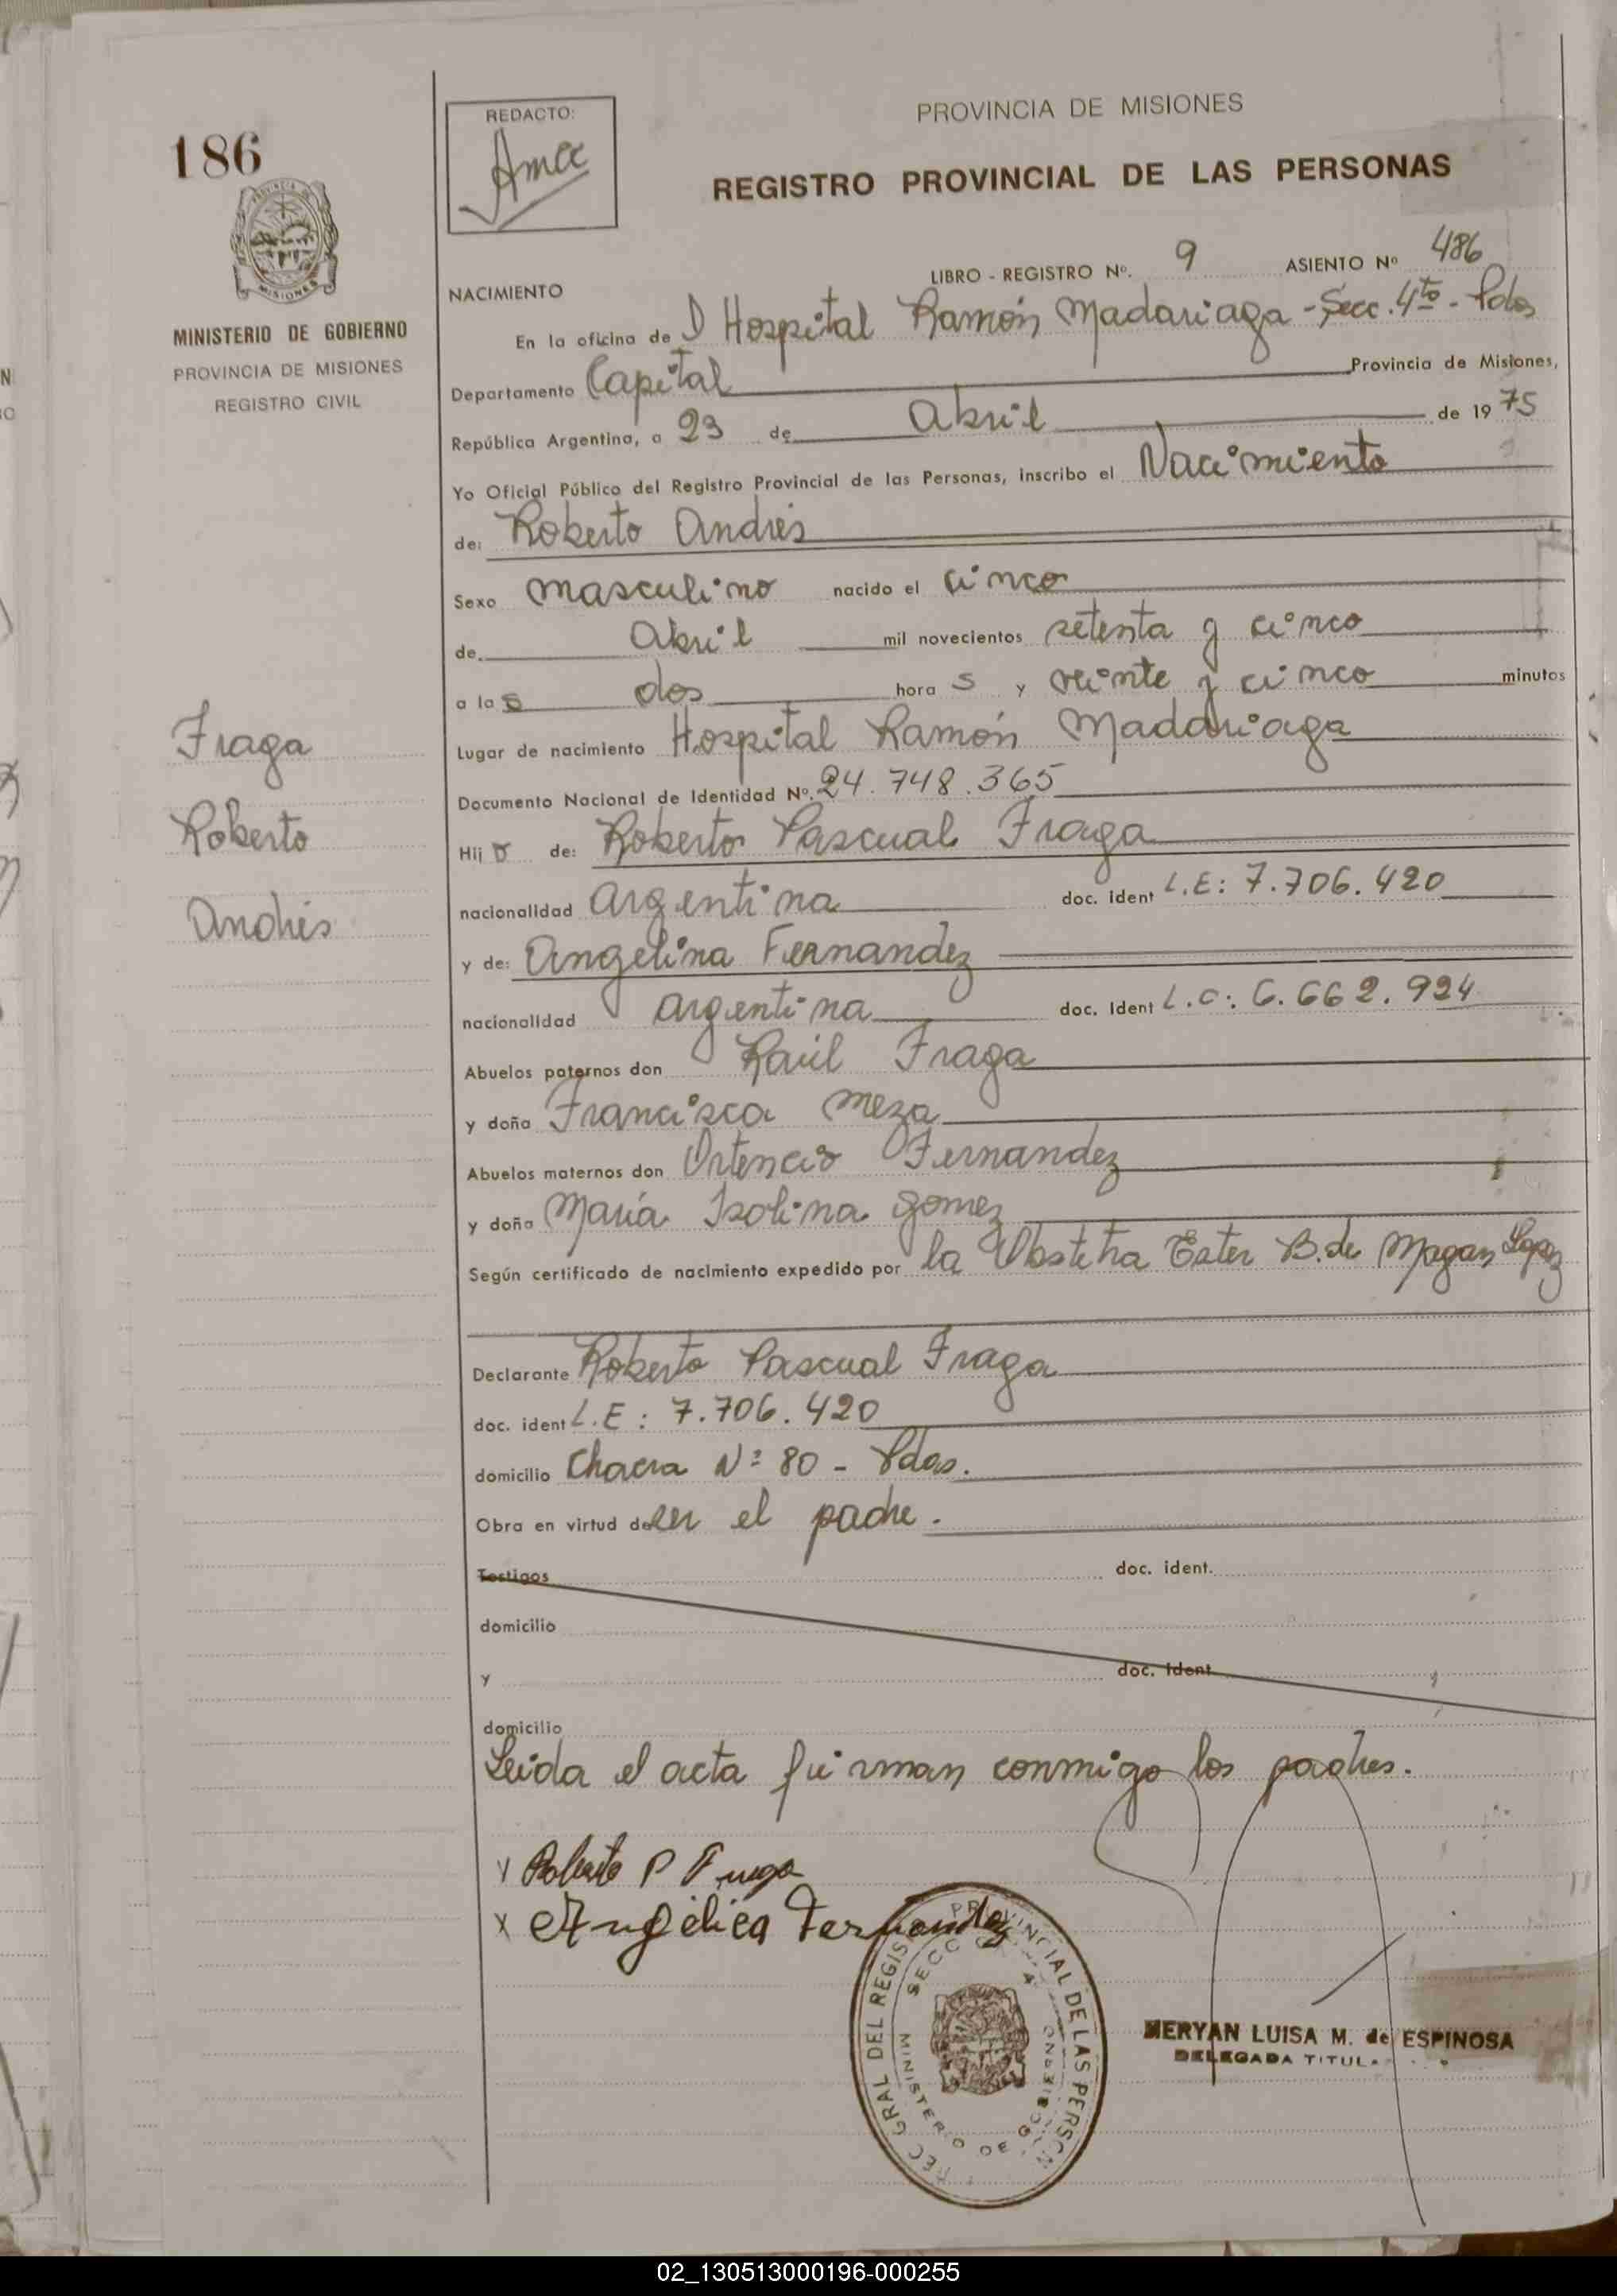 186
REDACTO:
PROVINCIA DE MISIONES
REGISTRO PROVINCIAL DE LAS PERSONAS
PROVINCIA DE
MISIONES
MINISTERIO DE GOBIERNO
PROVINCIA DE MISIONES
REGISTRO CIVIL
LIBRO - REGISTRO Nº. 9 ASIENTO Nº 486
NACIMIENTO
En la oficina de Hospital Ramón Madariaga - Secc. 4to - Pdas
Departamento Capital Provincia de Misiones,
República Argentina, a 23 de Abril de 1975
Yo Oficial Público del Registro Provincial de las Personas, inscribo el Nacimiento
de: Roberto Andrés
Sexo masculino nacido el cinco
de Abril mil novecientos setenta y cinco
a las dos horas y veinte y cinco minutos
Lugar de nacimiento Hospital Ramón Madariaga
Documento Nacional de Identidad Nº. 24.748.365
Hijo de: Roberto Pascual Fraga
nacionalidad argentina doc. ident L.E: 7.706.420
y de: Angelina Fernandez
nacionalidad argentina doc. Ident L.C: 6.662.924
Abuelos paternos don Raúl Fraga
y doña Francisca Meza
Abuelos maternos don Ortencio Fernandez
y doña María Isolina Gomez
Según certificado de nacimiento expedido por la Obstetra Ester B. de Magan Lopez
Declarante Roberto Pascual Fraga
doc. ident L.E: 7.706.420
domicilio Chacra Nº 80 - Pdas.
Obra en virtud de ser el padre.
Testigos doc. ident.
domicilio
y doc. Ident
domicilio
Leída el acta firman conmigo los padres.
Roberto P Fraga
x Angélica Fernandez
Fraga
Roberto
Andrés
GRAL DEL REGISTRO PROVINCIAL DE LAS PERSON
SECC 4
MINISTERIO DE GOBIERNO
MERYAN LUISA M. de ESPINOSA
DELEGADA TITULAR
02_130513000196-000255